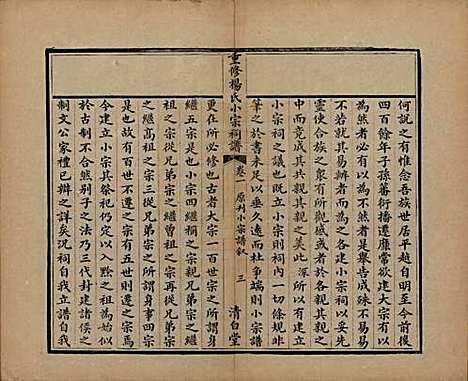 何說之有惟念吾族世居平越自明至今前後
四百餘年子孫蕃衍播遷靡常欲建大宗有以
為然者必有以為不然者是舉告成殊不易易
不若就其易辦者先建小宗祠以妥先
靈使合族之衆有所觀感或以各親其親之
中而竟成其共親其親之美此深所以有建立
小宗祠之議也既立小宗則祠內一切條規非
筆之於書未足以垂久遠而杜爭端小宗譜
更在所必修也古者大宗一百世不遷小宗有
重修楊氏小宗祠譜
卷一 原刊小宗譜敘 三 清白堂
繼五小宗者身事四宗與大宗為五之繼
祖之宗三從兄弟宗之所謂身事四宗
之繼高祖之宗三從兄弟宗之所謂
也是故有百世不遷之宗有五世則遷之宗焉
今立小宗其祭祀仍定以入黔之祖為始似
於古制不合然別子之法乃三代封建諸侯之
制文公家禮已辨之詳矣況祠自我立譜自我